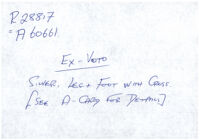 R28817
= A60661
Ex-Voto
Silver, Leg + Foot with Cross.
[See A-Card for Details]